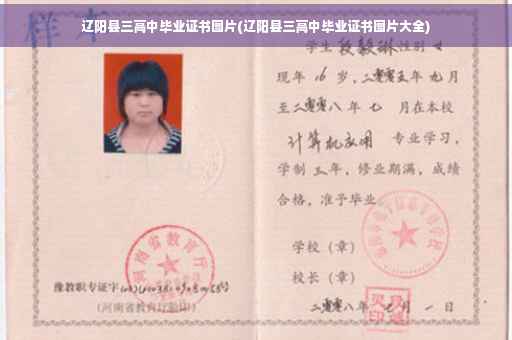 样本
辽阳县三高中毕业证书图片(辽阳县三高中毕业证书图片大全)
学生段毅琳性别女
现年16岁，二零零五年九月
至二零零八年七月在本校
计算机应用 专业学习，
学制三年，修业期满，成绩
合格，准予毕业。
河南省教育厅
学校（章）
校长（章）
豫教职专证字
(河南省教育厅验印)
二零零八年七月一日